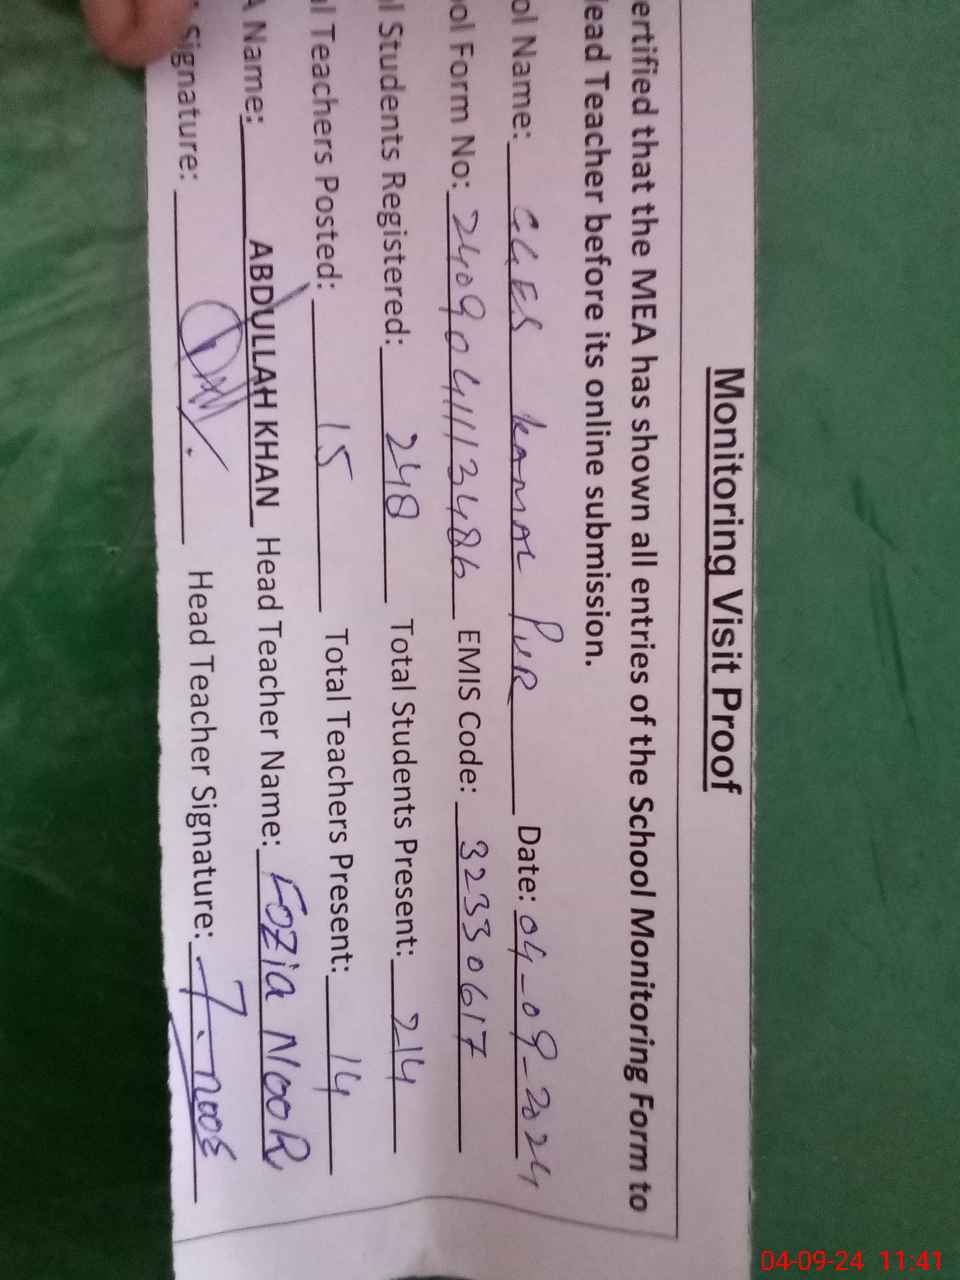 Monitoring Visit Proof
ertified that the MEA has shown all entries of the School Monitoring Form to
lead Teacher before its online submission.
ol Name: GGES KAMAL PUR Date: 04-09-2024
ol Form No: 2409041113486 EMIS Code: 32330617
l Students Registered: 248 Total Students Present: 214
al Teachers Posted: 15 Total Teachers Present: 14
A Name: ABDULLAH KHAN Head Teacher Name: Fozia NooR
Signature: Head Teacher Signature: F. noor
04-09-24 11:41